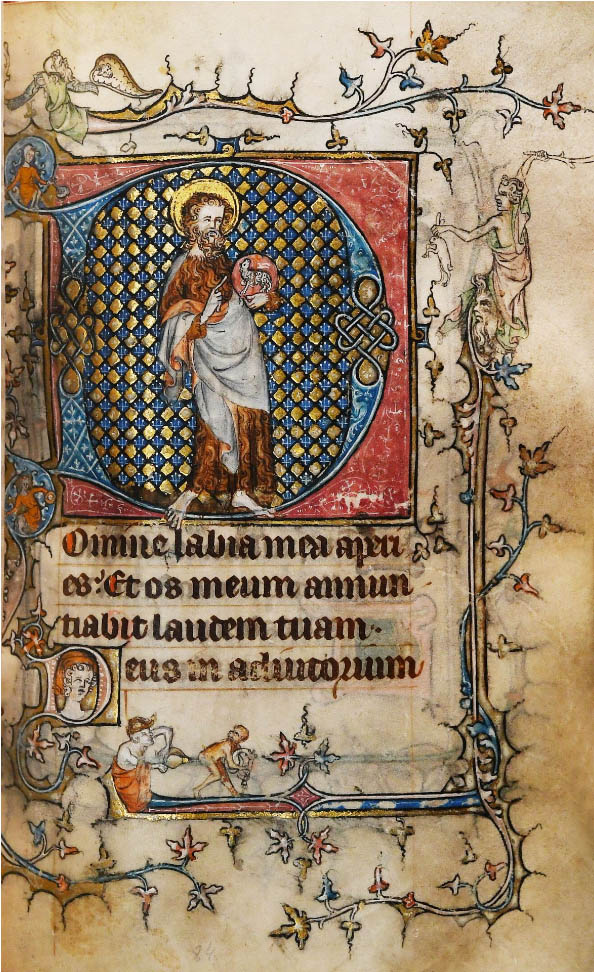 Omine labia mea aperi
es: Et os meum annun
tiabit laudem tuam.
Deus in adiutorium
84